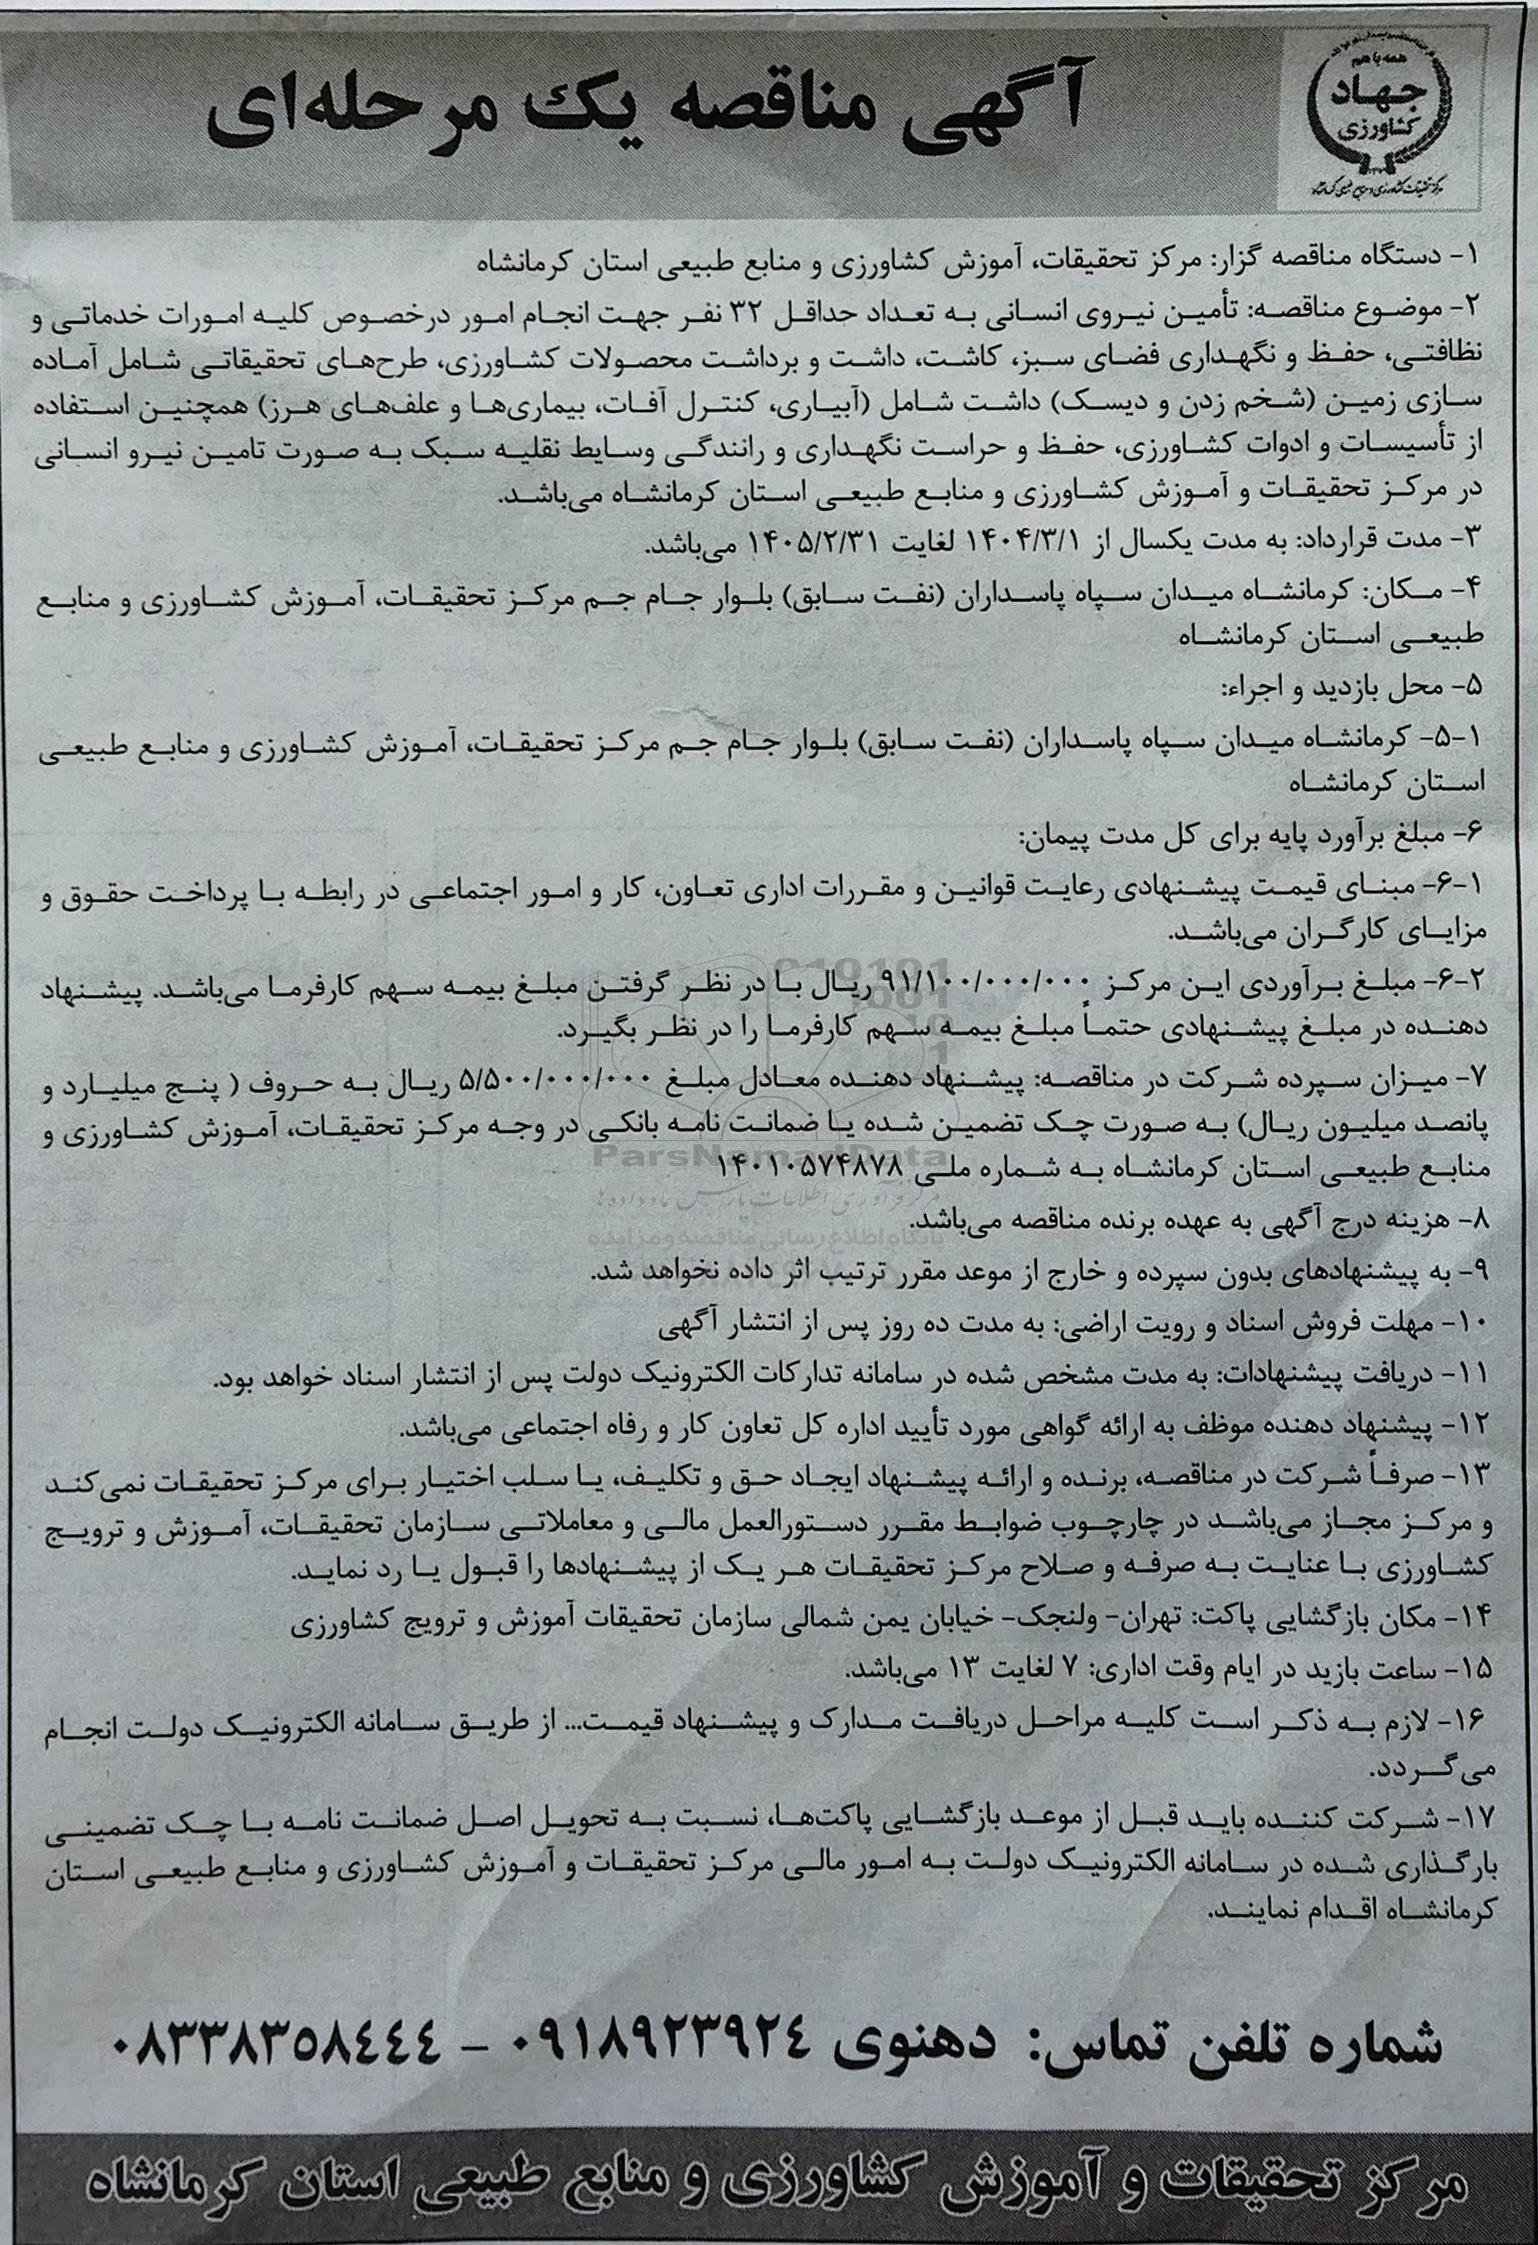 همه با هم
جهاد
کشاورزی
آگهی مناقصه یک مرحله‌ای
۱- دستگاه مناقصه گزار: مرکز تحقیقات، آموزش کشاورزی و منابع طبیعی استان کرمانشاه
۲- موضوع مناقصه: تأمین نیروی انسانی به تعداد حداقل ۳۲ نفر جهت انجام امور درخصوص کلیه امورات خدماتی و
نظافتی، حفظ و نگهداری فضای سبز، کاشت، داشت و برداشت محصولات کشاورزی، طرح‌های تحقیقاتی شامل آماده
سازی زمین (شخم زدن و دیسک) داشت شامل (آبیاری، کنترل آفات، بیماری‌ها و علف‌های هرز) همچنین استفاده
از تأسیسات و ادوات کشاورزی، حفظ و حراست نگهداری و رانندگی وسایط نقلیه سبک به صورت تامین نیرو انسانی
در مرکز تحقیقات و آموزش کشاورزی و منابع طبیعی استان کرمانشاه می‌باشد.
۳- مدت قرارداد: به مدت یکسال از ۱۴۰۴/۳/۱ لغایت ۱۴۰۵/۲/۳۱ می‌باشد.
۴- مکان: کرمانشاه میدان سپاه پاسداران (نفت سابق) بلوار جام جم مرکز تحقیقات، آموزش کشاورزی و منابع
طبیعی استان کرمانشاه
۵- محل بازدید و اجراء:
۵-۱- کرمانشاه میدان سپاه پاسداران (نفت سابق) بلوار جام جم مرکز تحقیقات، آموزش کشاورزی و منابع طبیعی
استان کرمانشاه
۶- مبلغ برآورد پایه برای کل مدت پیمان:
۶-۱- مبنای قیمت پیشنهادی رعایت قوانین و مقررات اداری تعاون، کار و امور اجتماعی در رابطه با پرداخت حقوق و
مزایای کارگران می‌باشد.
۶-۲- مبلغ برآوردی این مرکز ۹۱/۱۰۰/۰۰۰/۰۰۰ ریال با در نظر گرفتن مبلغ بیمه سهم کارفرما می‌باشد. پیشنهاد
دهنده در مبلغ پیشنهادی حتماً مبلغ بیمه سهم کارفرما را در نظر بگیرد.
۷- میزان سپرده شرکت در مناقصه: پیشنهاد دهنده معادل مبلغ ۵/۵۰۰/۰۰۰/۰۰۰ ریال به حروف ( پنج میلیارد و
پانصد میلیون ریال) به صورت چک تضمین شده یا ضمانت نامه بانکی در وجه مرکز تحقیقات، آموزش کشاورزی و
منابع طبیعی استان کرمانشاه به شماره ملی ۱۴۰۱۰۵۷۴۸۷۸
ParsNamadData
۸- هزینه درج آگهی به عهده برنده مناقصه می‌باشد.
پایگاه اطلاع رسانی مناقصه و مزایده
۹- به پیشنهادهای بدون سپرده و خارج از موعد مقرر ترتیب اثر داده نخواهد شد.
۱۰- مهلت فروش اسناد و رویت اراضی: به مدت ده روز پس از انتشار آگهی
۱۱- دریافت پیشنهادات: به مدت مشخص شده در سامانه تدارکات الکترونیک دولت پس از انتشار اسناد خواهد بود.
۱۲- پیشنهاد دهنده موظف به ارائه گواهی مورد تأیید اداره کل تعاون کار و رفاه اجتماعی می‌باشد.
۱۳- صرفاً شرکت در مناقصه، برنده و ارائه پیشنهاد ایجاد حق و تکلیف، یا سلب اختیار برای مرکز تحقیقات نمی‌کند
و مرکز مجاز می‌باشد در چارچوب ضوابط مقرر دستورالعمل مالی و معاملاتی سازمان تحقیقات، آموزش و ترویج
کشاورزی با عنایت به صرفه و صلاح مرکز تحقیقات هر یک از پیشنهادها را قبول یا رد نماید.
۱۴- مکان بازگشایی پاکت: تهران- ولنجک- خیابان یمن شمالی سازمان تحقیقات آموزش و ترویج کشاورزی
۱۵- ساعت بازید در ایام وقت اداری: ۷ لغایت ۱۳ می‌باشد.
۱۶- لازم به ذکر است کلیه مراحل دریافت مدارک و پیشنهاد قیمت... از طریق سامانه الکترونیک دولت انجام
می‌گردد.
۱۷- شرکت کننده باید قبل از موعد بازگشایی پاکت‌ها، نسبت به تحویل اصل ضمانت نامه با چک تضمینی
بارگذاری شده در سامانه الکترونیک دولت به امور مالی مرکز تحقیقات و آموزش کشاورزی و منابع طبیعی استان
کرمانشاه اقدام نمایند.
شماره تلفن تماس: دهنوی ۰۹۱۸۹۲۳۹۲۴ - ۰۸۳۳۸۳۵۸۴۴۴
مرکز تحقیقات و آموزش کشاورزی و منابع طبیعی استان کرمانشاه